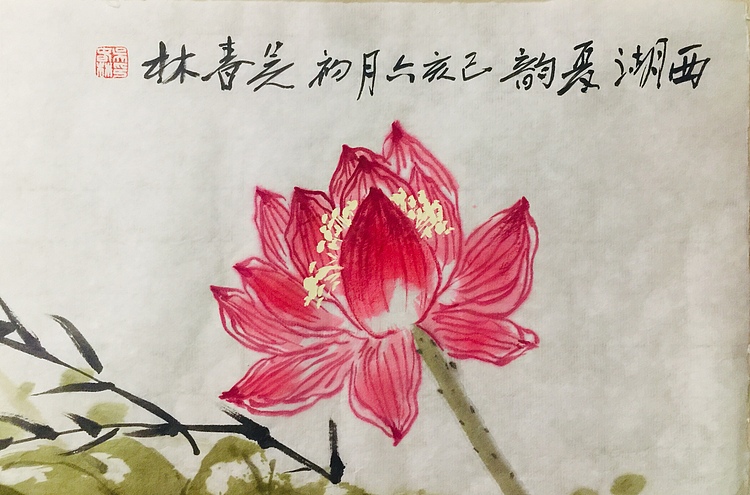 西湖夏韵 己亥六月初 吴春林